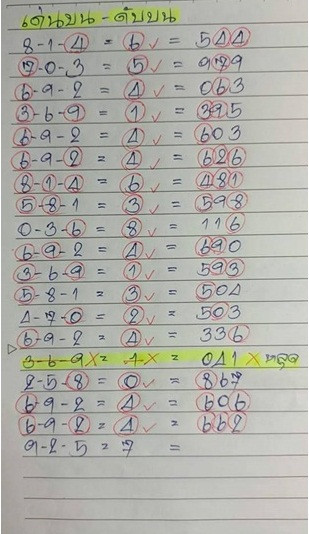 เด่นบน - ดับบน
8-1-4 = 6 ✓ = 544
7-0-3 = 5 ✓ = 979
6-9-2 = 4 ✓ = 063
3-6-9 = 1 ✓ = 395
6-9-2 = 4 ✓ = 603
6-9-2 = 4 ✓ = 626
8-1-4 = 6 ✓ = 481
5-8-1 = 3 ✓ = 598
0-3-6 = 8 ✓ = 116
6-9-2 = 4 ✓ = 690
3-6-9 = 1 ✓ = 593
5-8-1 = 3 ✓ = 504
4-7-0 = 2 ✓ = 503
6-9-2 = 4 ✓ = 336
3-6-9 X = 1 X = 041 X หลุด
2-5-8 = 0 ✓ = 867
6-9-2 = 4 ✓ = 606
6-9-2 = 4 ✓ = 662
9-2-5 = 7 =